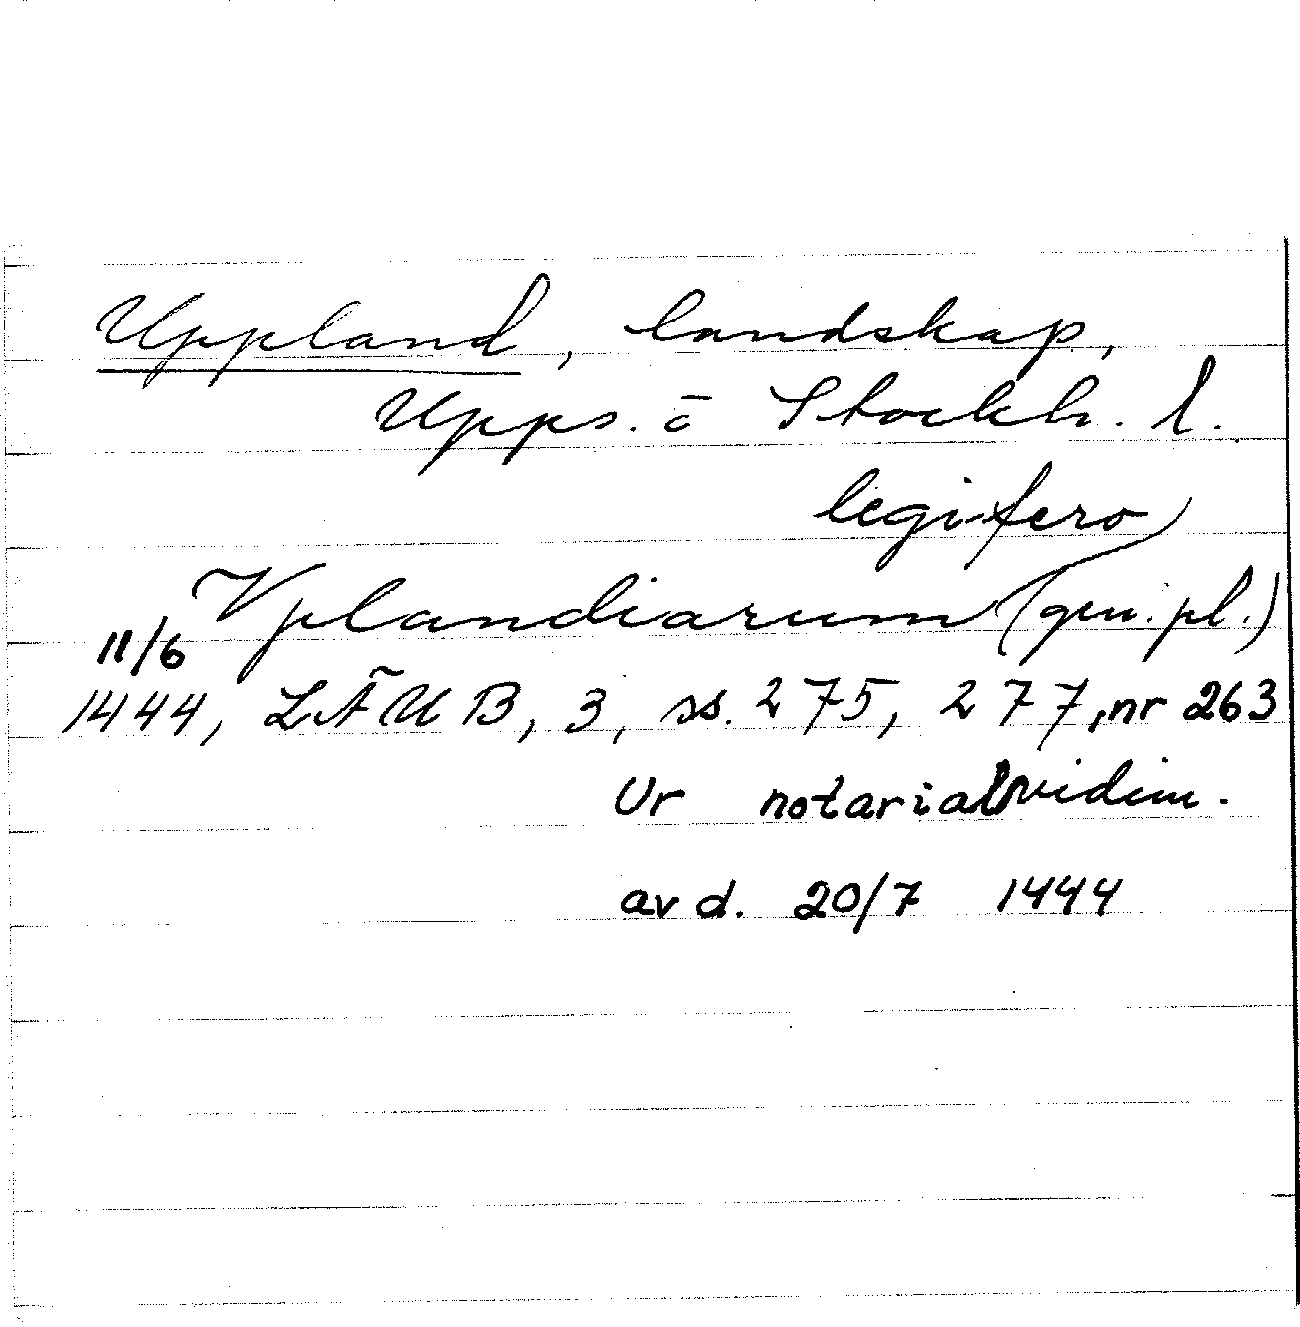 Uppland, landskap,
Upps. o Stockh. l.
legifero
Vplandiarum (gen. pl.)
11/6
1444, LÄUB, 3, ss. 275, 277, nr 263
Ur notarialvidim.
av d. 20/7 1444